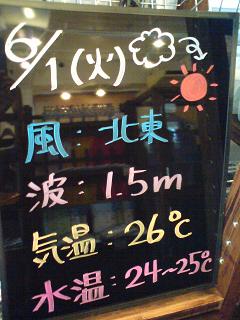 6/1(火)
風:北東
波:1.5m
気温:26℃
水温:24~25℃